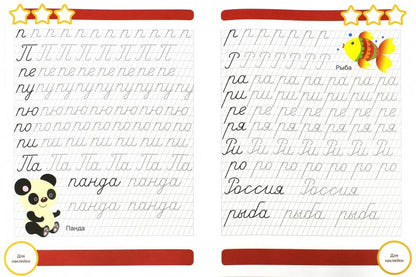 п п п п п п п п п п п п
П П П П П П П П
пе пе пе пе пе пе пе пе
пу пу пу пу пу пу пу пу
пю пю пю пю пю пю
по по по по по по по по
пи пи пи пи пи пи пи пи
Па Па Па Па Па Па
панда панда
панда панда
Панда
Для
наклейки
р р р р р р р
Р Р Р Р Р Р Р
Рыба
ра ра ра ра ра ра ра
ри ри ри ри ри ри ри
ре ре ре ре ре ре ре
ря ря ря ря ря ря ря
Ри Ри Ри Ри Ри Ри
ро ро ро ро ро ро ро
Россия Россия
рыба рыба рыба
Для
наклейки